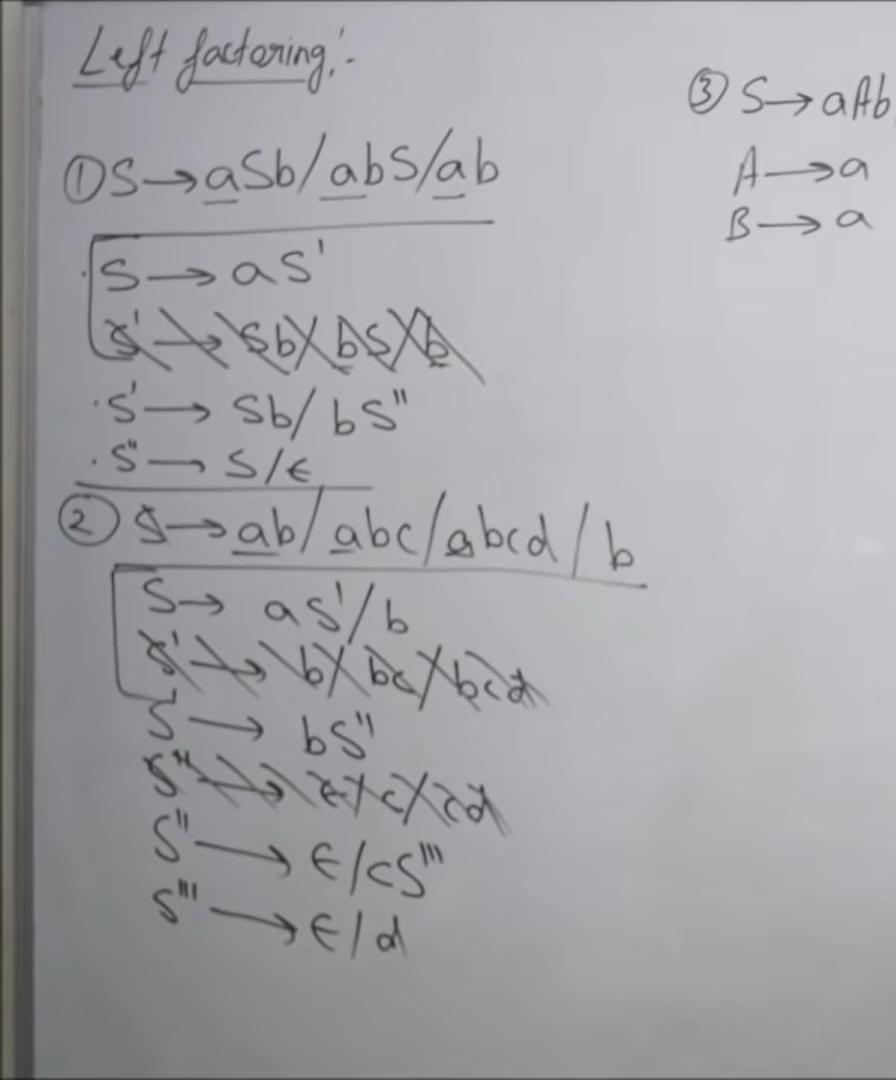 Left factoring:-
① S → aSb/abS/ab
S → aS'
S' → Sb/bS/b
S' → Sb/bS"
S" → S/ϵ
② S → ab/abc/abcd/b
S → aS'/b
S' → b/bc/bcd
S' → bS"
S" → ϵ/c/cd
S" → ϵ/cS'''
S''' → ϵ/d
③ S → aAb
A → a
B → a